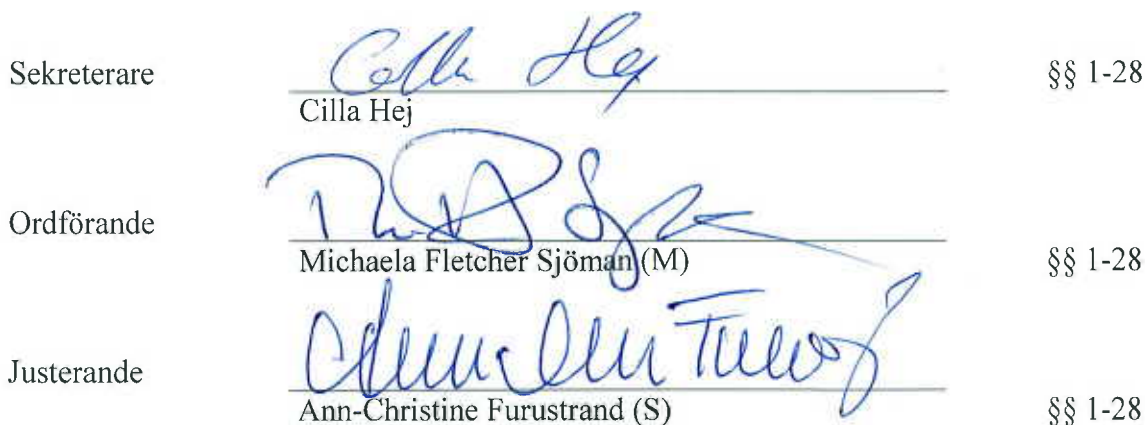 Sekreterare Cilla Hej §§ 1-28
Cilla Hej
Ordförande §§ 1-28
Michaela Fletcher Sjöman (M)
Justerande §§ 1-28
Ann-Christine Furustrand (S)